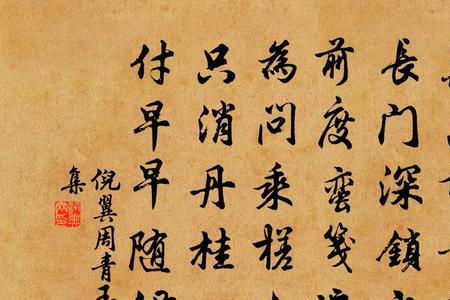 長门深鎖
前度蛮箋
為问乘槎
只消丹桂
付早早随
倪翼周青
集